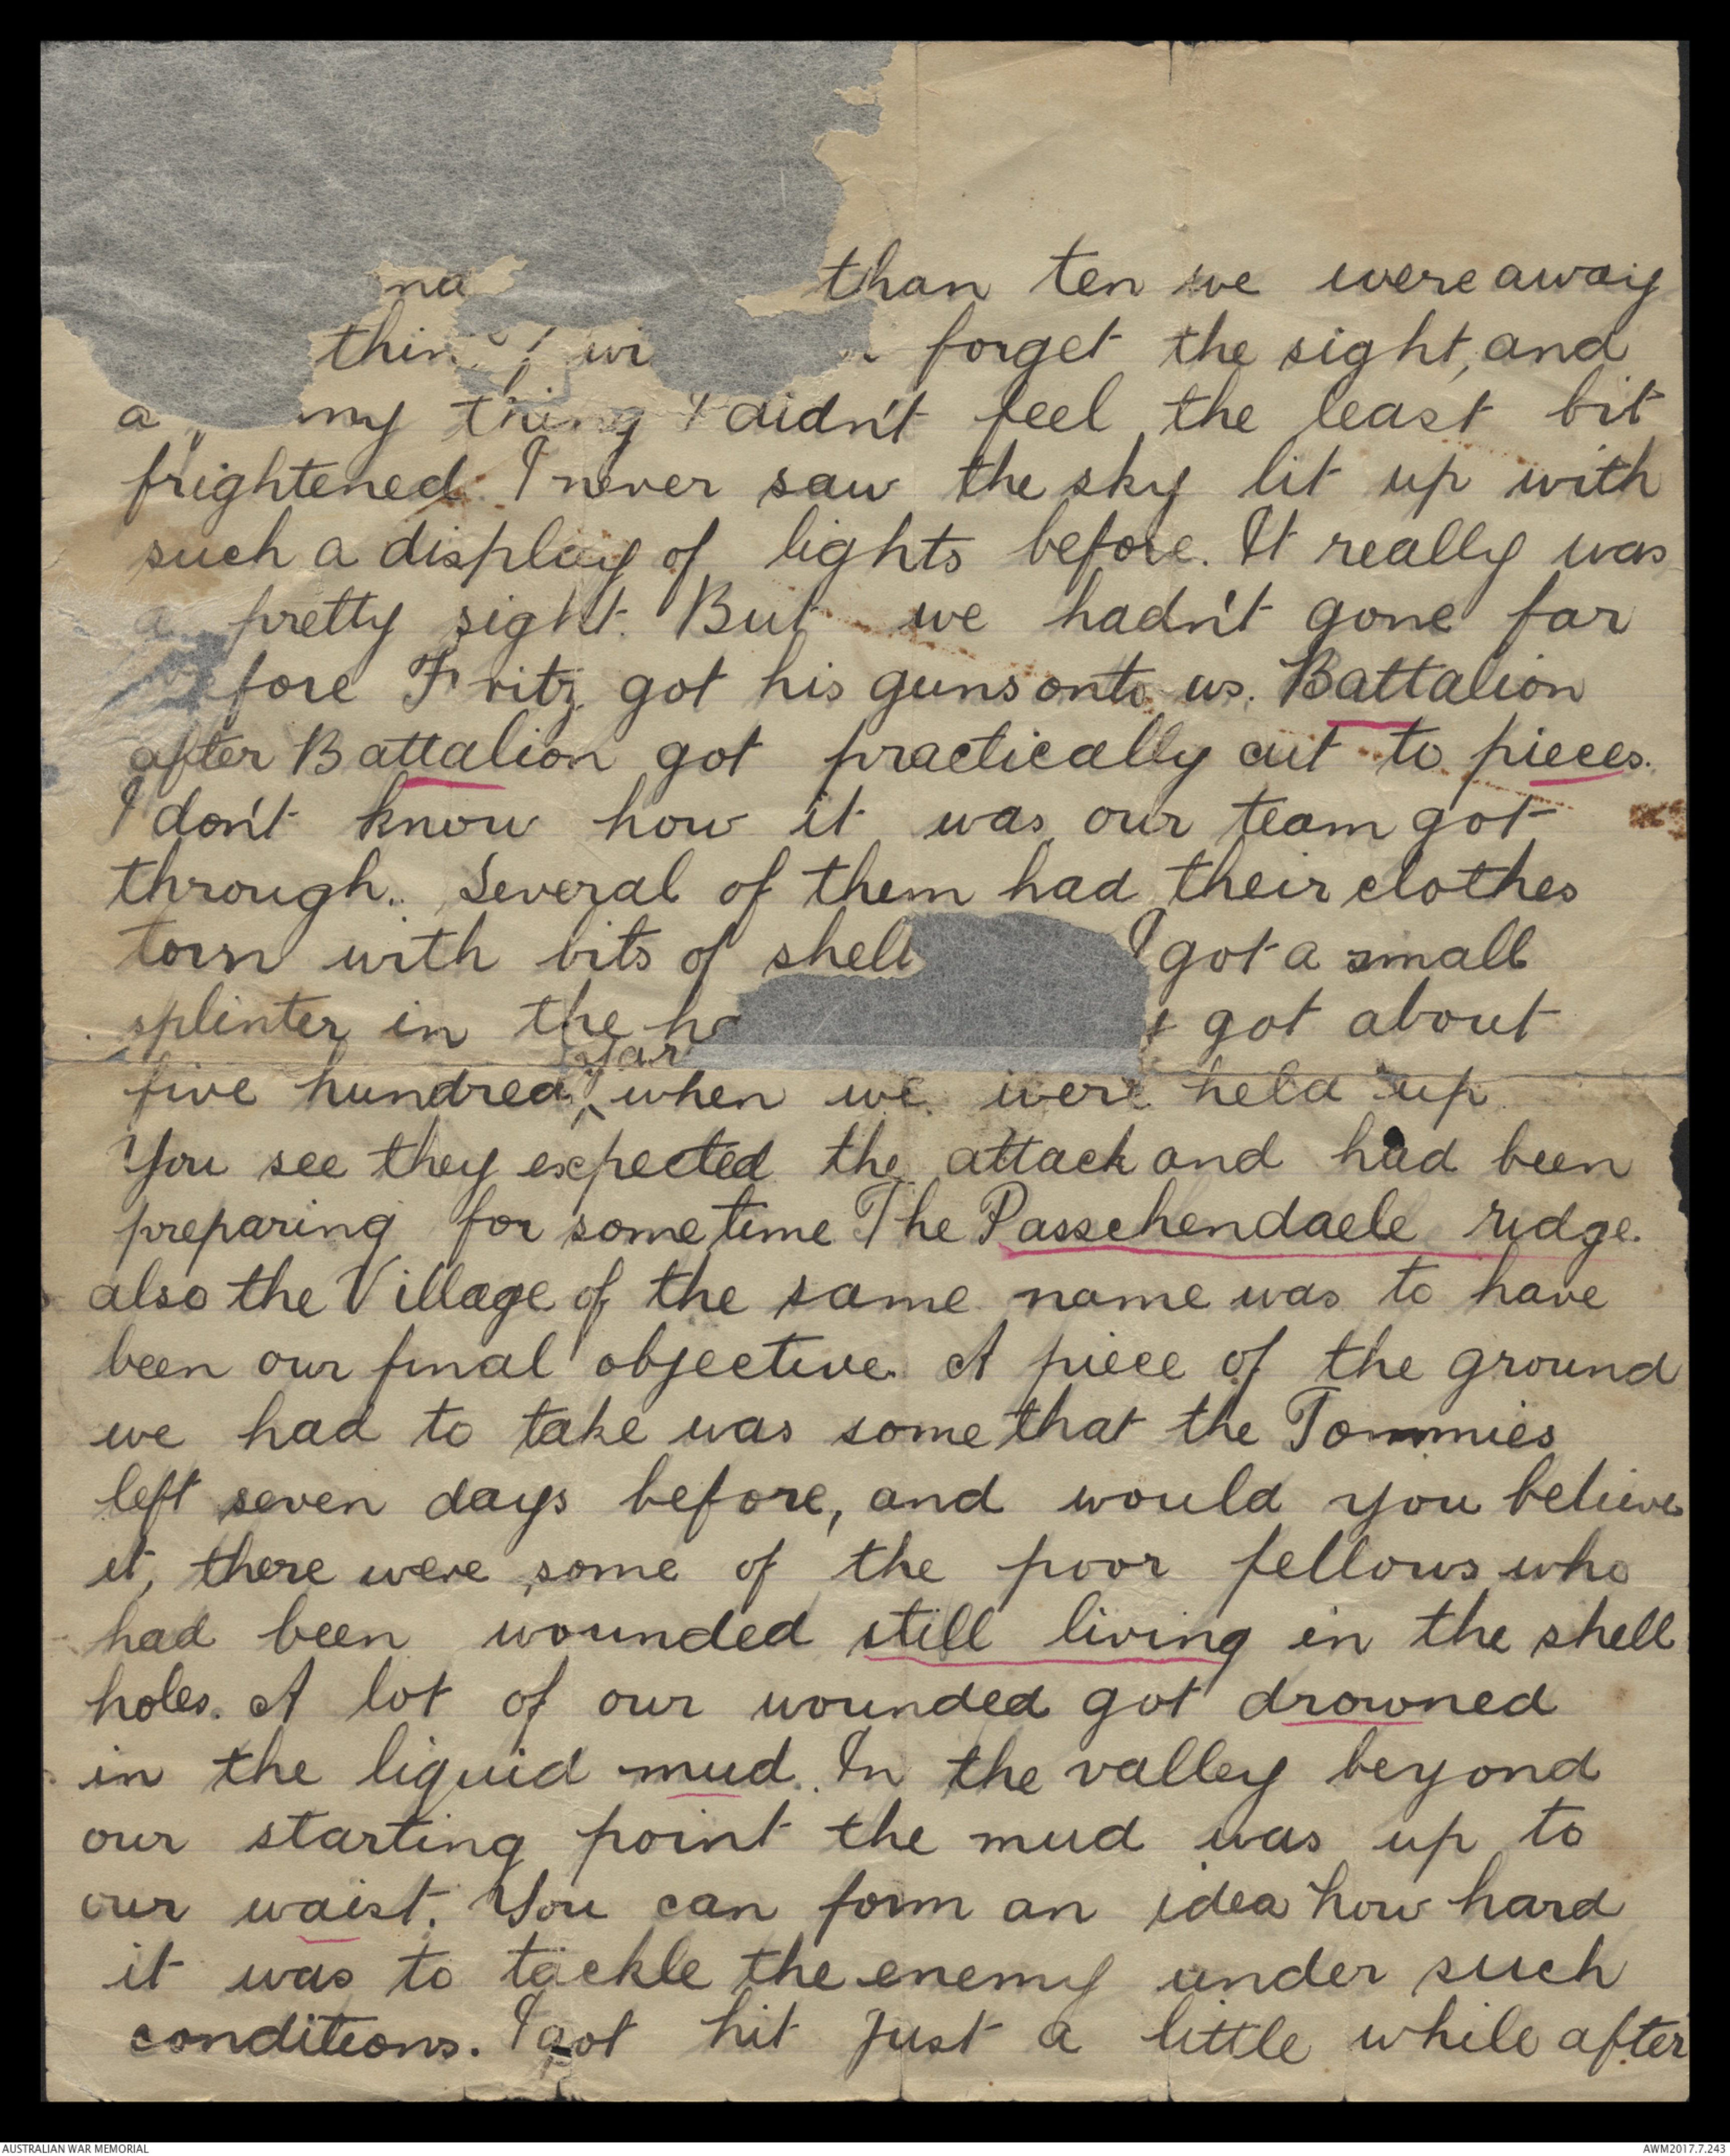 na than ten we were away
thin I wi forget the sight, and
a my thing I didn't feel the least bit
frightened. I never saw the sky lit up with
such a display of lights before. It really was
a pretty sight. But we hadn't gone far
fore Fritz got his guns onto us. Battalion
after Battalion got practically cut to pieces.
I don't know how it was our team got
through. Several of them had their clothes
torn with bits of shell I got a small
splinter in the ha got about
yar
five hundred when we were held up
You see they expected the attack and had been
preparing for sometime The Passchendaele ridge.
also the Village of the same name was to have
been our final objective. A piece of the ground
we had to take was some that the Tommies
left seven days before, and would you believe
it, there were some of the poor fellows who
had been wounded still living in the shell
holes. A lot of our wounded got drowned
in the liquid mud. In the valley beyond
our starting point the mud was up to
our waist. You can form an idea how hard
it was to tackle the enemy under such
conditions. I got hit just a little while after
AUSTRALIAN WAR MEMORIAL AWM2017.7.243